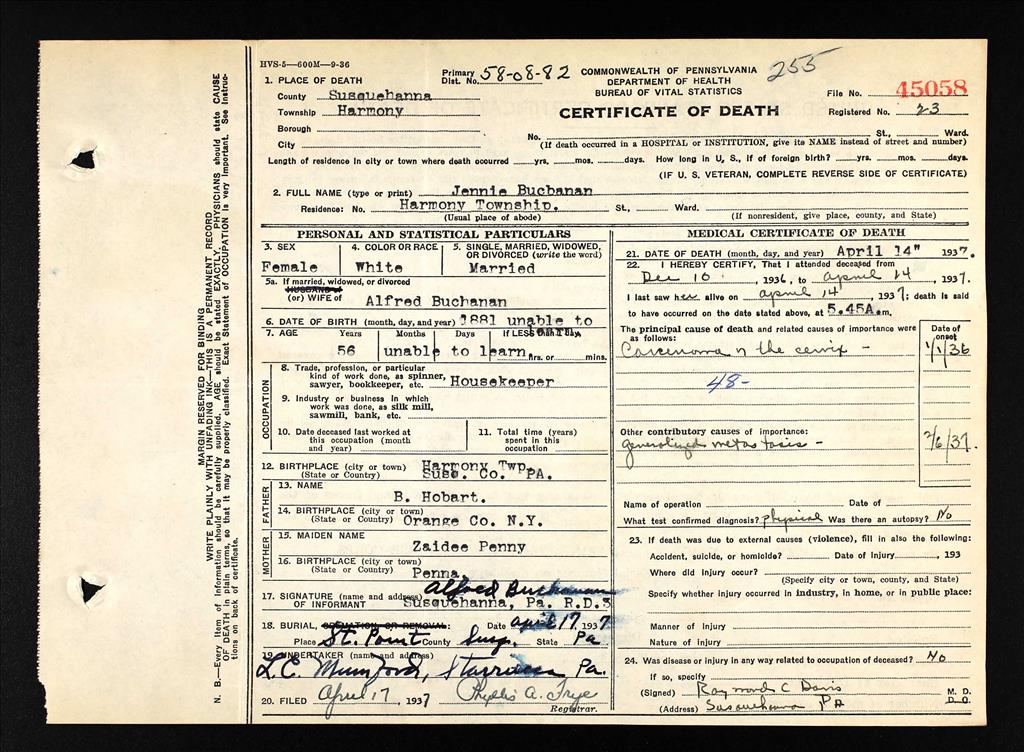 HVS-5—600M—9-36
Primary Dist. No. 58-08-82
COMMONWEALTH OF PENNSYLVANIA
DEPARTMENT OF HEALTH
BUREAU OF VITAL STATISTICS
255
File No. 45058
CERTIFICATE OF DEATH
Registered No. 23
1. PLACE OF DEATH
County Susquehanna
Township Harmony
Borough
City
No. St., Ward.
(If death occurred in a HOSPITAL or INSTITUTION, give its NAME instead of street and number)
Length of residence in city or town where death occurred yrs. mos. days. How long in U, S., if of foreign birth? yrs. mos. days.
(IF U. S. VETERAN, COMPLETE REVERSE SIDE OF CERTIFICATE)
2. FULL NAME (type or print) Jennie Bucbanan
Residence: No. Harmony Township. St., Ward.
(Usual place of abode) (If nonresident, give place, county, and State)
PERSONAL AND STATISTICAL PARTICULARS
3. SEX Female
4. COLOR OR RACE White
5. SINGLE, MARRIED, WIDOWED, OR DIVORCED (write the word) Married
5a. If married, widowed, or divorced
HUSBAND of
(or) WIFE of Alfred Buchanan
6. DATE OF BIRTH (month, day, and year) 1881 unable to
7. AGE Years Months Days If LESS than 1 day,
56 unable to learn. hrs. or mins.
OCCUPATION
8. Trade, profession, or particular kind of work done, as spinner, sawyer, bookkeeper, etc. Housekeeper
9. Industry or business in which work was done, as silk mill, sawmill, bank, etc.
10. Date deceased last worked at this occupation (month and year)
11. Total time (years) spent in this occupation
12. BIRTHPLACE (city or town) Harmony Twp.
(State or Country) Susc. Co. PA.
FATHER
13. NAME B. Hobart.
14. BIRTHPLACE (city or town)
(State or Country) Orange Co. N.Y.
MOTHER
15. MAIDEN NAME Zaidee Penny
16. BIRTHPLACE (city or town)
(State or Country) Penna.
17. SIGNATURE (name and address) OF INFORMANT Alfred Buchanan
Susquehanna, Pa. R.D.3
18. BURIAL, CREMATION OR REMOVAL: Date April 17, 1937
Place St. Point County Susq. State Pa
19. UNDERTAKER (name and address)
L.E. Mumford, Starrucca Pa.
20. FILED April 17 1937 Phyllis A. Frye
Registrar.
MEDICAL CERTIFICATE OF DEATH
21. DATE OF DEATH (month, day, and year) April 14" 1937.
22. I HEREBY CERTIFY, That I attended deceased from
Dec 10, 1936, to April 14, 1937.
I last saw her alive on April 14, 1937; death is said
to have occurred on the date stated above, at 5.45A.m.
The principal cause of death and related causes of importance were as follows:
Date of onset
Carcinoma of the cervix - 1/1/36
48-
Other contributory causes of importance:
Generalized metastasis - 2/6/37.
Name of operation Date of
What test confirmed diagnosis? Physical Was there an autopsy? No
23. If death was due to external causes (violence), fill in also the following:
Accident, suicide, or homicide? Date of Injury , 193
Where did injury occur?
(Specify city or town, county, and State)
Specify whether injury occurred in industry, in home, or in public place:
Manner of Injury
Nature of Injury
24. Was disease or injury in any way related to occupation of deceased? No
If so, specify
(Signed) Raymond C Davis M. D. D. O.
(Address) Susquehanna PA
MARGIN RESERVED FOR BINDING
WRITE PLAINLY WITH UNFADING INK—THIS IS A PERMANENT RECORD
N. B.—Every item of information should be carefully supplied. AGE should be stated EXACTLY. PHYSICIANS should state CAUSE
OF DEATH in plain terms, so that it may be properly classified. Exact Statement of OCCUPATION is very important. See Instruc-
tions on back of certificate.